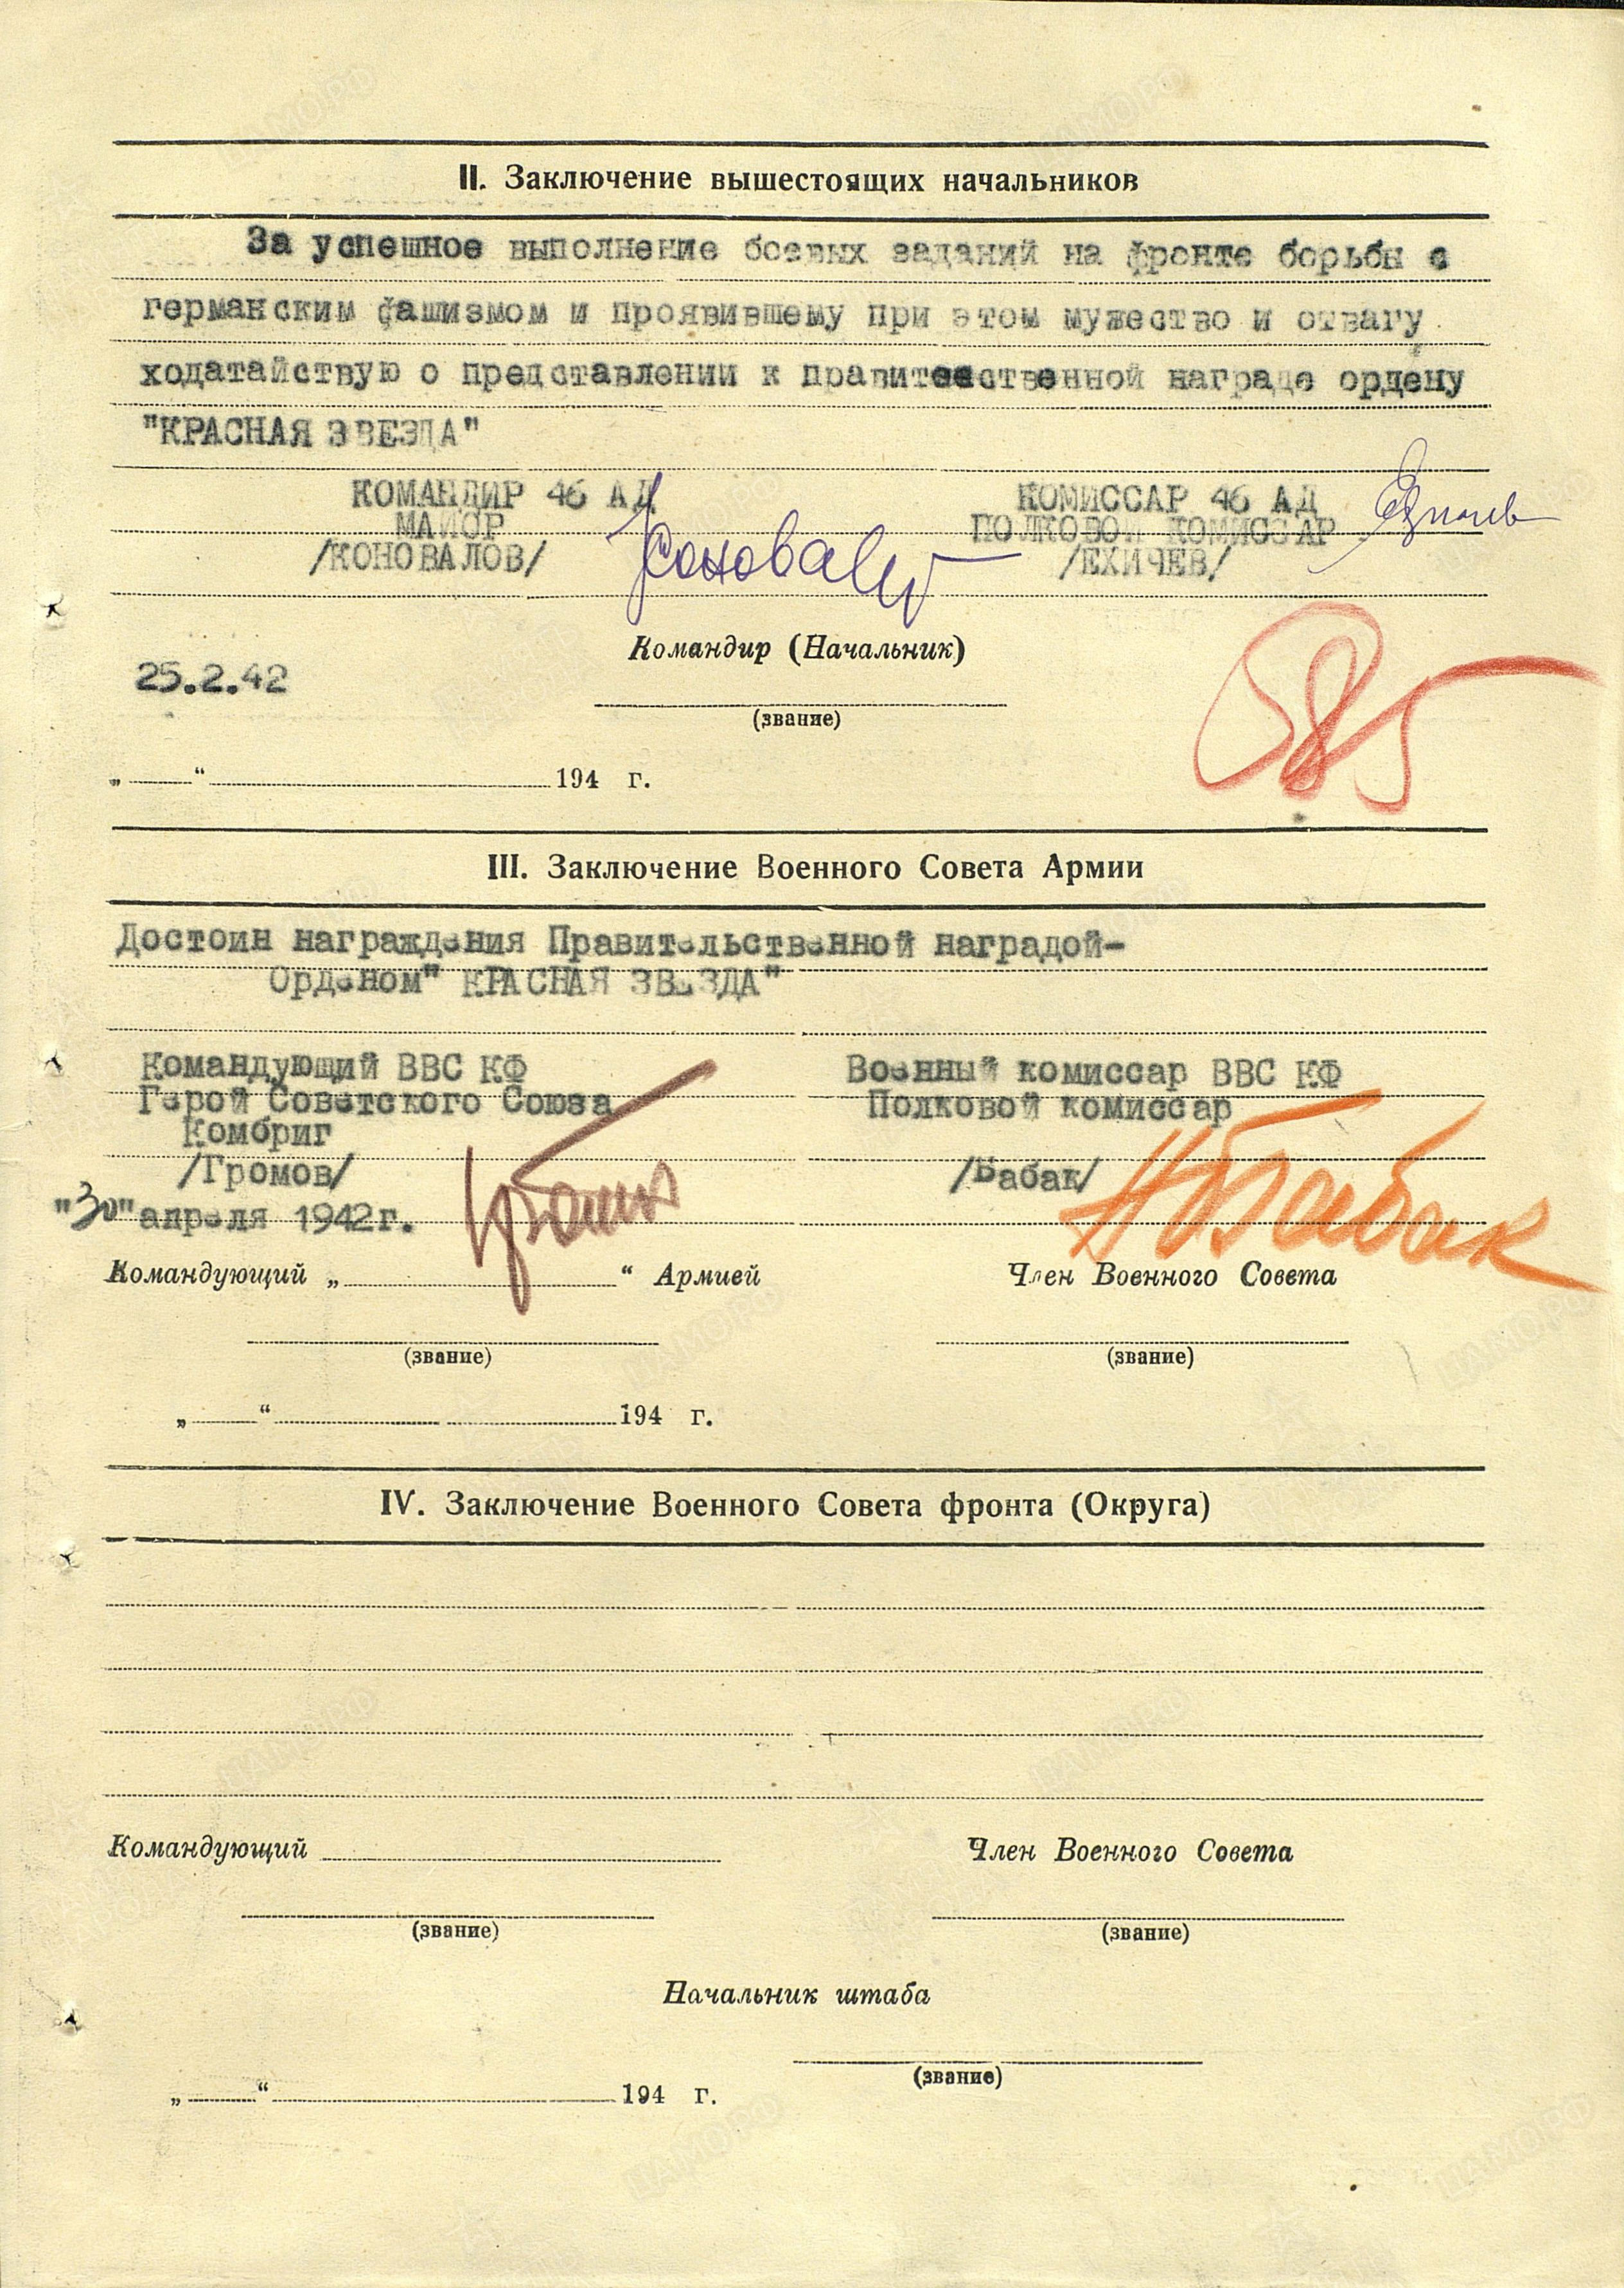 II. Заключение вышестоящих начальников
За успешное выполнение боевых заданий на фронте борьбы с
германским фашизмом и проявившему при этом мужество и отвагу
ходатайствую о представлении к правитеественной награде ордену
"КРАСНАЯ ЗВЕЗДА"
КОМАНДИР 46 АД
МАЙОР
/КОНОВАЛОВ/
Коновалов
КОМИССАР 46 АД
ПОЛКОВОЙ КОМИССАР
/ЕХИЧЕВ/
Командир (Начальник)
25.2.42
(звание)
„ “ 194 г.
585
III. Заключение Военного Совета Армии
Достоин награждения Правительственной наградой-
Орденом" КРАСНАЯ ЗВЕЗДА"
Командующий ВВС КФ
Герой Советского Союза
Комбриг
/Громов/
"30" апреля 1942г.
Военный комиссар ВВС КФ
Полковой комиссар
/Бабак/
Бабак
Командующий „ “ Армией
Член Военного Совета
(звание)
(звание)
„ “ 194 г.
IV. Заключение Военного Совета фронта (Округа)
Командующий
Член Военного Совета
(звание)
(звание)
Начальник штаба
(звание)
„ “ 194 г.
ЦАМО.РФ